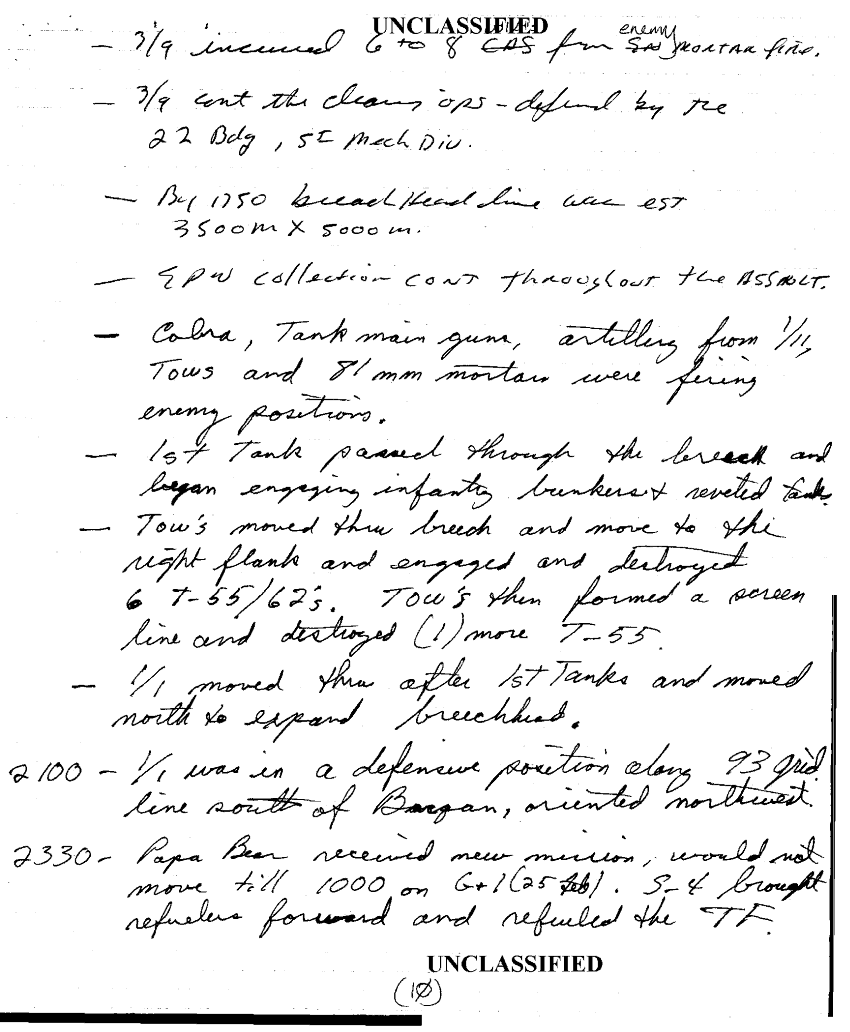 UNCLASSIFIED
- 3/9 incurred 6 to 8 CAS from enemy MORTAR fire.
- 3/9 cont the clearing ops - defend by the
22 Bdg, 5th Mech Div.
- By 1750 breach Head line was est
3500m X 5000m.
- EPW collection cont throughout the ASSAULT.
- Cobra, Tank main guns, artillery from 1/11,
Tows and 81mm mortars were firing
enemy positions.
- 1st Tank passed through the breech and
began engaging infantry bunkers & reveted tanks.
- Tow's moved thru breech and move to the
right flank and engaged and destroyed
6 T-55/62's. Tow's then formed a screen
line and destroyed (1) more T-55.
- 1/1 moved thru after 1st Tanks and moved
north to expand breechhead.
2100 - 1/1 was in a defensive position along 93 grid
line south of Burgan, oriented northwest.
2330 - Papa Bear received new mission, would not
move till 1000 on G+1 (25 feb). S-4 brought
refuelers forward and refueled the TF.
UNCLASSIFIED
(10)